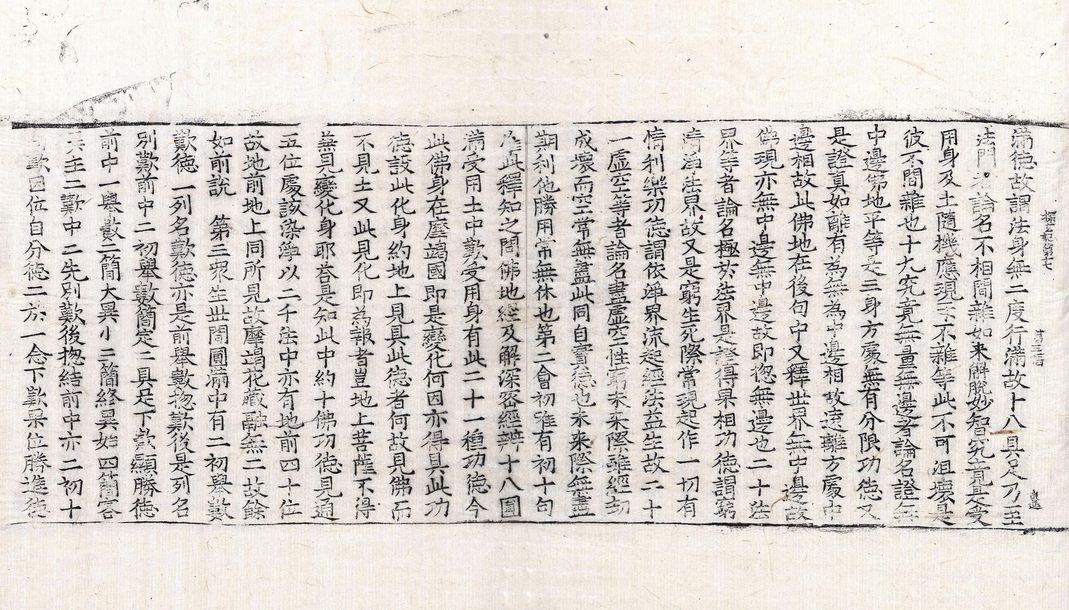 滿德故謂法身無二度行滿故十八具足乃至
法門者論名不相間雜如來解脫妙智究竟是受
用身及土隨機應現亦不雜等此不可沮壞是
彼不間雜也十九究竟無量無邊者論名證無
中邊佛地平等是三身方處無有分限功德又
是證真如離有為無為中邊相故遠離方處中
邊相故此佛地在後句中又釋世界無中邊故
佛現亦無中邊無中邊故即揔無邊也二十法
界等者論名極於法界是證得果相功德謂窮
清淨法界故又是窮生死際常現起作一切有
情利樂功德謂依淨界流起經法益生故二十
一虛空等者論名盡虛空性窮未來際雖經劫
成壞而空常無盡此同自實德也未來際無盡
期利他勝用常無休也第二會初唯有初十句
准此釋知之問佛地經及解深密經辨十八圓
滿受用土中歎受用身有此二十一種功德今
此佛身在摩竭國即是變化何因亦得具此功
德設此化身約地上見具此德者何故見佛而
不見土又此見化即為報者豈地上菩薩不得
無見變化身耶答是知此中約十佛功德具通
五位處該染淨以二千法中亦有地前四十位
故地前地上同所見故摩竭花藏融無二故餘
如前說 第三眾生世間圓滿中有二初舉數
歎德二列名歎德亦是前舉數揔歎後是列名
別歎前中二初舉數簡定二具足下歎顯勝德
前中一舉數二簡大異小三簡終異始四簡客
異主二歎中二先別歎後揔結前中亦二初十
句歎因位自分德二於一念下歎果位勝進德